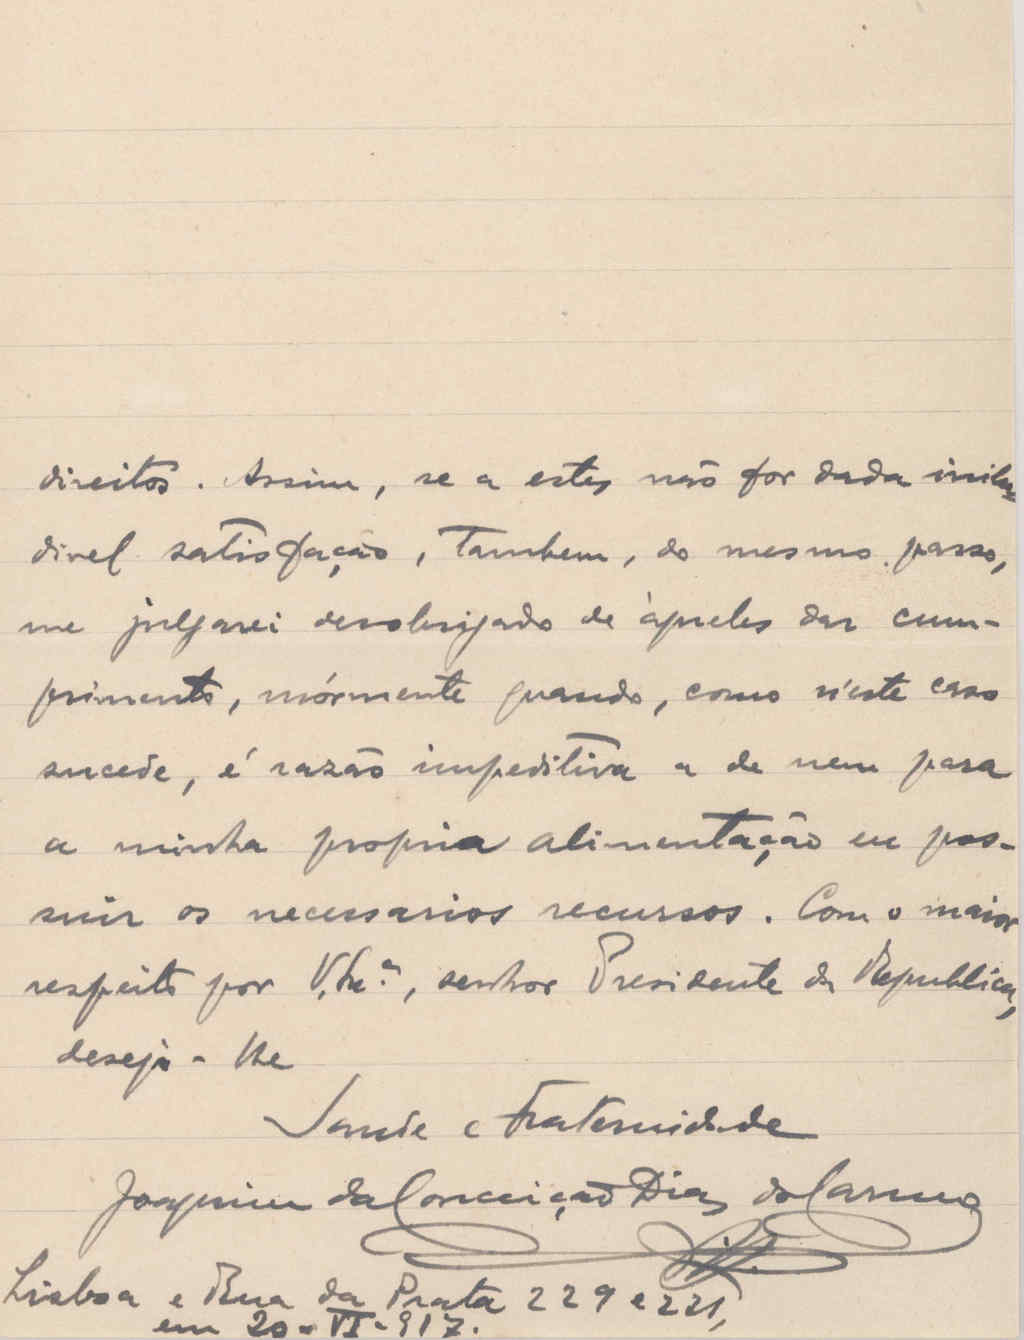 direitos. Assim, se a estes não for dada inilu-
divel satisfação, tambem, do mesmo passo,
me julgarei desobrigado de àqueles dar cum-
primento, mórmente quando, como n'este caso
sucede, é razão impeditiva a de nem para
a minha propria alimentação eu pos-
suir os necessarios recursos. Com o maior
respeito por V. Ex.ª, senhor Presidente da Republica,
desejo-lhe
Saude e Fraternidade
Joaquim da Conceição Dias do Carmo
Lisboa e Rua da Prata 229 e 221,
em 20-VI-917.